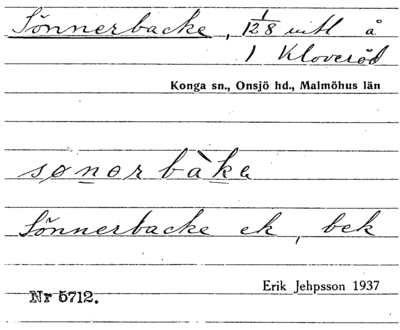 Sönnerbacke, 1/128 mtl å
1 Kloveröd
Konga sn., Onsjö hd., Malmöhus län
sønərbàkə
Sönnerbacke ek, bek
Erik Jehpsson 1937
Nr 5712.